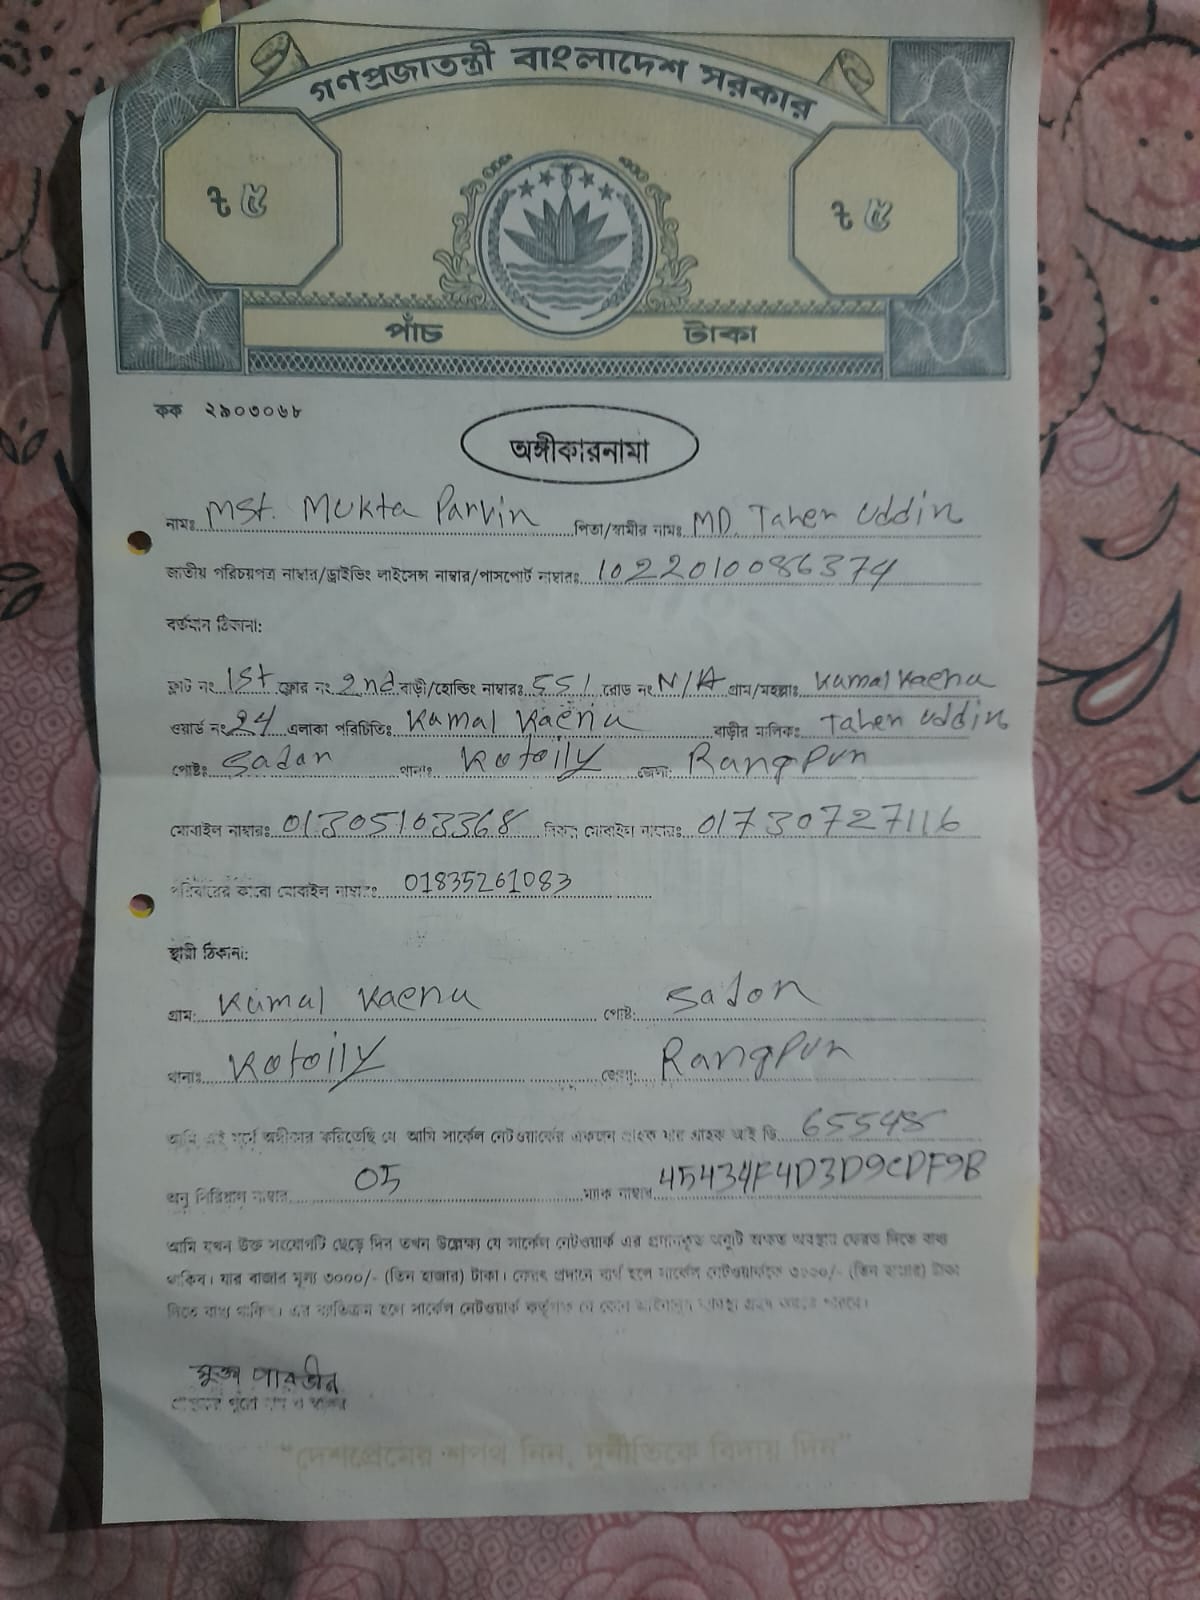 গণপ্রজাতন্ত্রী বাংলাদেশ সরকার
৳ ৫ ৳ ৫
পাঁচ টাকা
কক ২৯০৩০৬৮
অঙ্গীকারনামা
নামঃ Mst. Mukta Parvin পিতা/স্বামীর নামঃ MD. Taher Uddin
জাতীয় পরিচয়পত্র নাম্বার/ড্রাইভিং লাইসেন্স নাম্বার/পাসপোর্ট নাম্বারঃ 1022010086374
বর্তমান ঠিকানা:
ফ্লাট নং 1st ফ্লোর নং 2nd বাড়ী/হোল্ডিং নাম্বারঃ 551 রোড নং N/A গ্রাম/মহল্লাঃ Kamal Kaena
ওয়ার্ড নং 24 এলাকা পরিচিতিঃ Kamal Kaena বাড়ীর মালিকঃ Taher Uddin
পোষ্টঃ Sadar থানাঃ Kotoily জেলা: Rangpur
মোবাইল নাম্বারঃ 01305103368 বিকল্প মোবাইল নাম্বারঃ 01730727116
পরিবারের কারো মোবাইল নাম্বারঃ 01835261083
স্থায়ী ঠিকানা:
গ্রাম: Kamal Kaena পোষ্ট: Sador
থানাঃ Kotoily জেলা: Rangpur
আমি এই মর্মে অঙ্গীকার করিতেছি যে আমি সার্কেল নেটওয়ার্কের একজন গ্রাহক যার গ্রাহক আই ডি 65548
অনু সিরিয়াল নাম্বার 05 ম্যাক নাম্বার 45434F4D3D9CDF9B
আমি যখন উক্ত সংযোগটি ছেড়ে দিব তখন উল্লেক্ষ্য যে সার্কেল নেটওয়ার্ক এর প্রদানকৃত অনুটি অক্ষত অবস্থায় ফেরত দিতে বাধ্য
থাকিব। যার বাজার মূল্য ৩০০০/- (তিন হাজার) টাকা। ফেরৎ প্রদানে ব্যর্থ হলে সার্কেল নেটওয়ার্ককে ৩০০০/- (তিন হাজার) টাকা
দিতে বাধ্য থাকিব। এর ব্যতিক্রম হলে সার্কেল নেটওয়ার্ক কর্তৃপক্ষ যে কোন আইনানুগ ব্যবস্থা গ্রহন করতে পারবে।
মুক্তা পারভীন
গ্রাহকের পুরো নাম ও স্বাক্ষর
“দেশপ্রেমের শপথ নিন, দুর্নীতিকে বিদায় দিন”